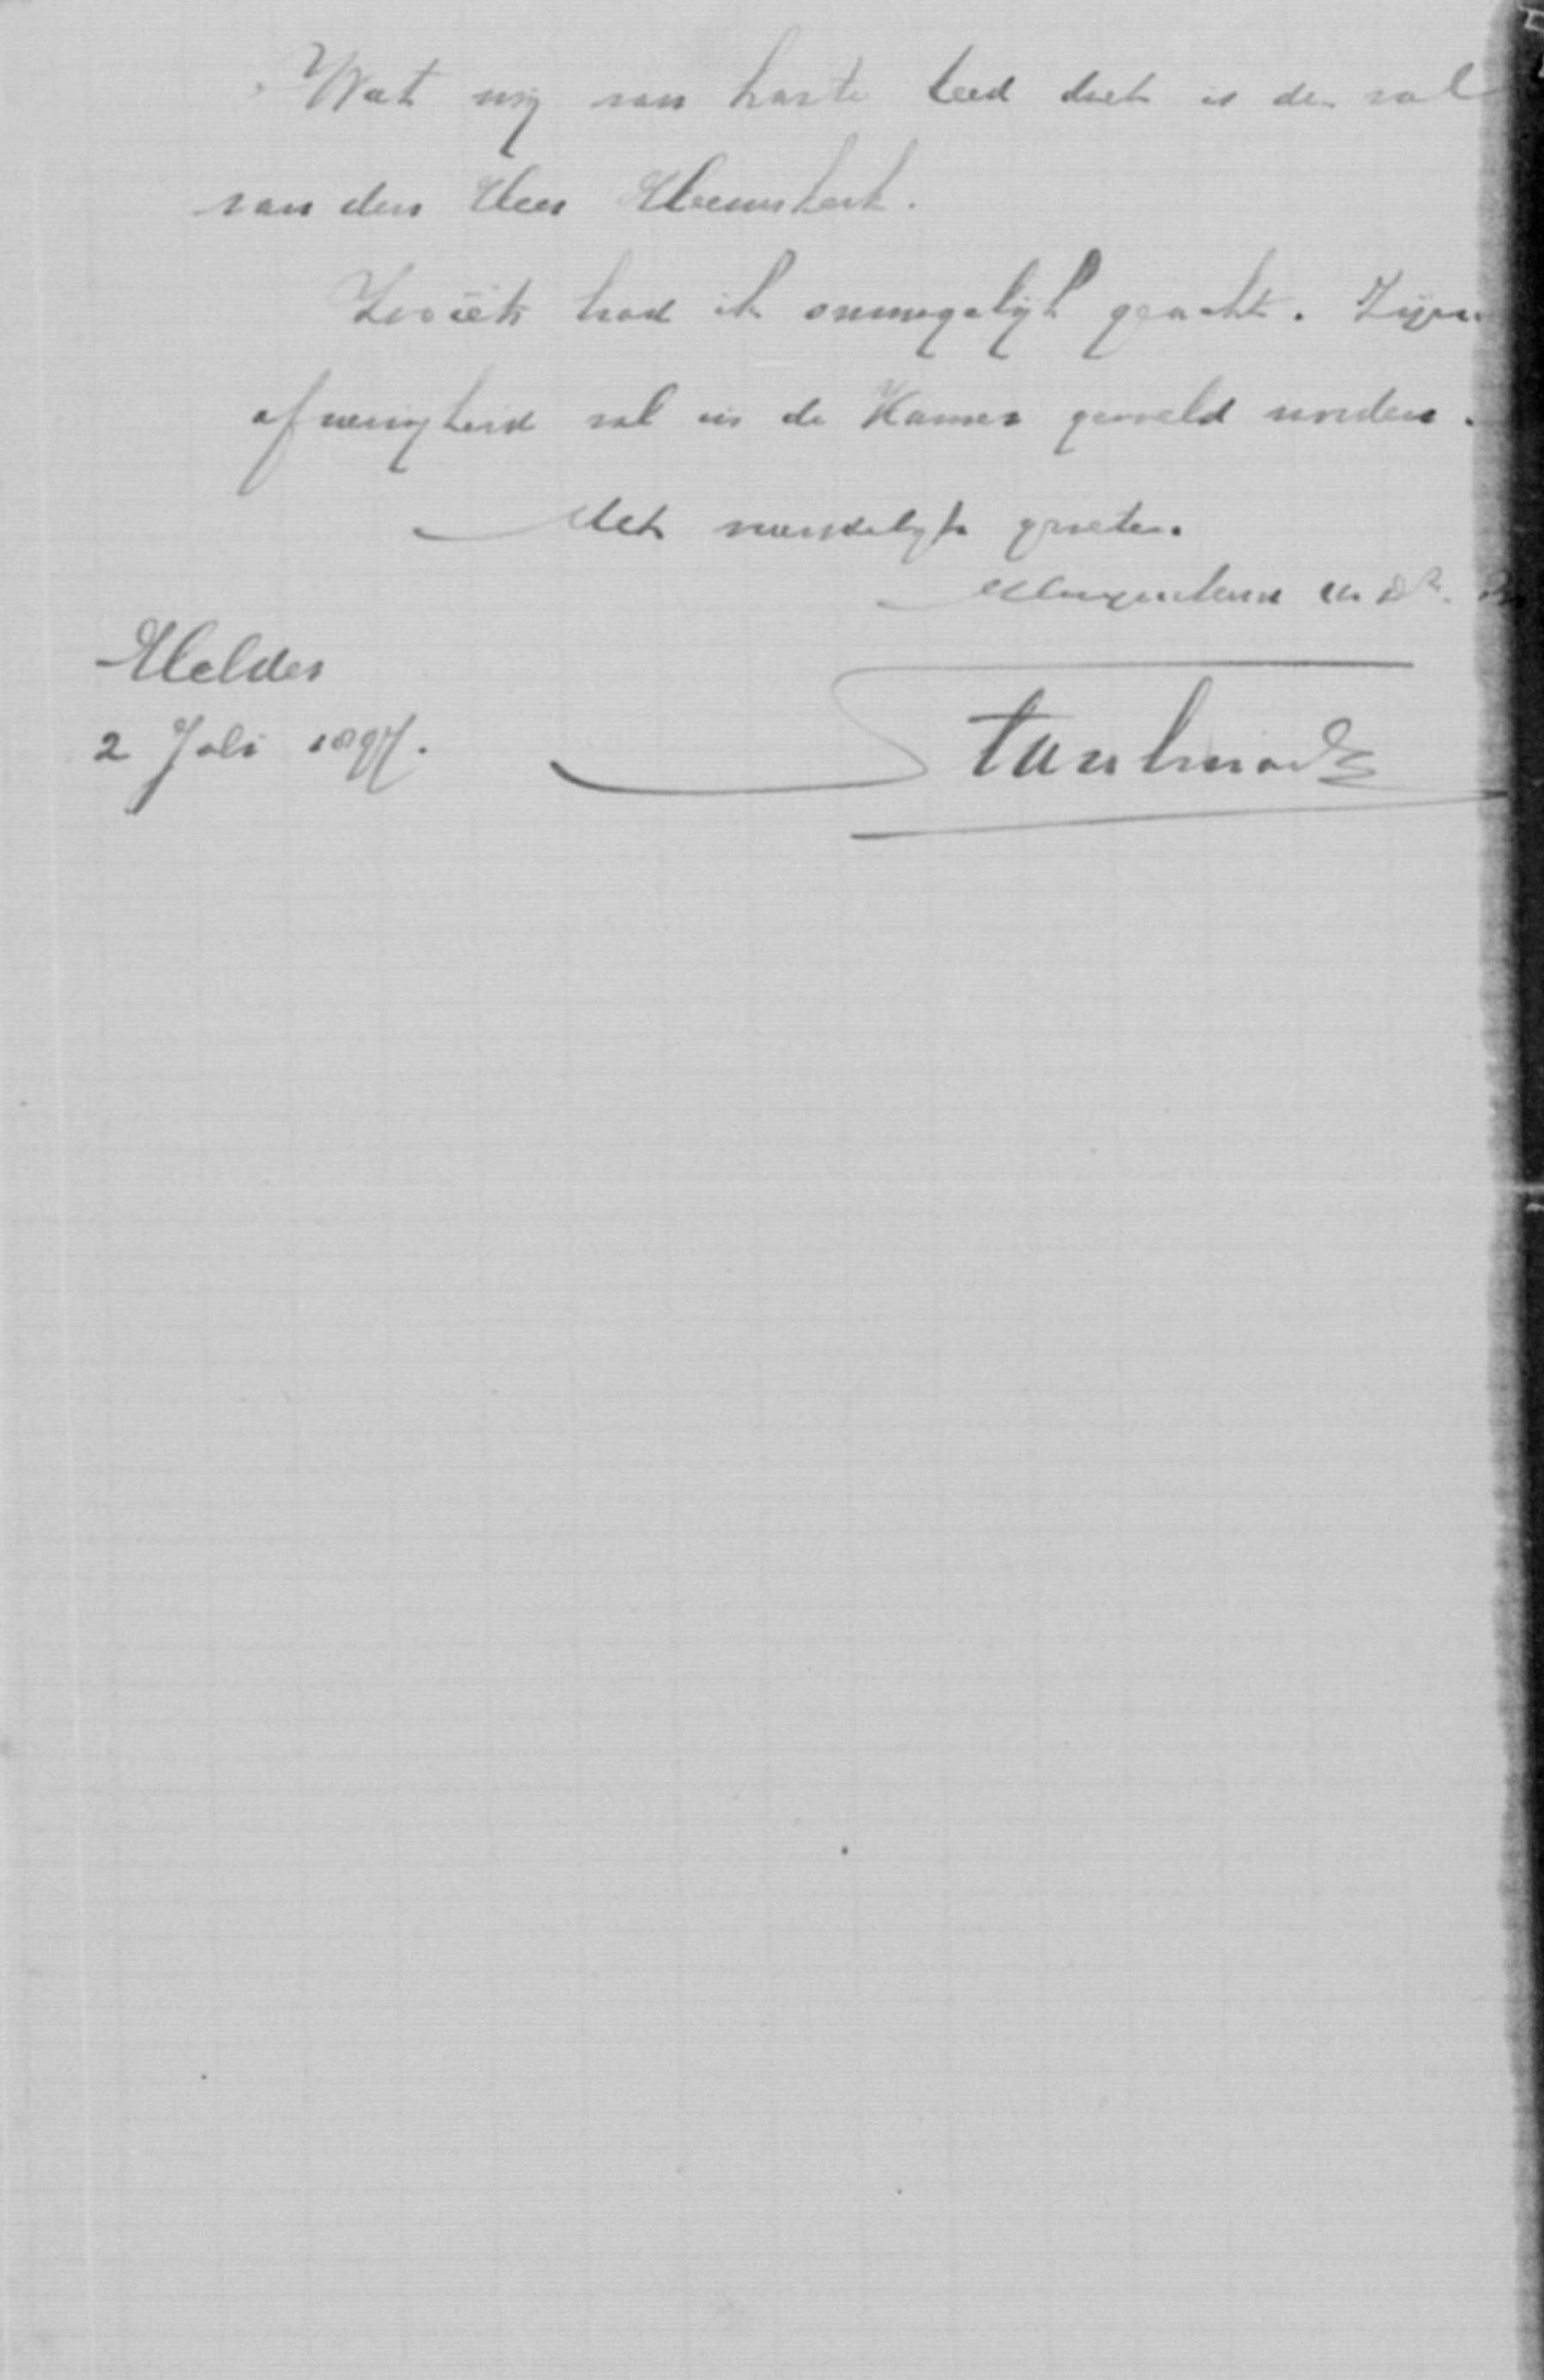 Wat mij van harte leed doet is de val
van den Heer Heemskerk.
Zooiets had ik onmogelijk geacht. Zijne
afwezigheid zal in de Kamer gevoeld worden.
Met vriendelijke groeten.
Hoogachtend Uw Dr.
Helder
2 Juli 1897.
Staalman